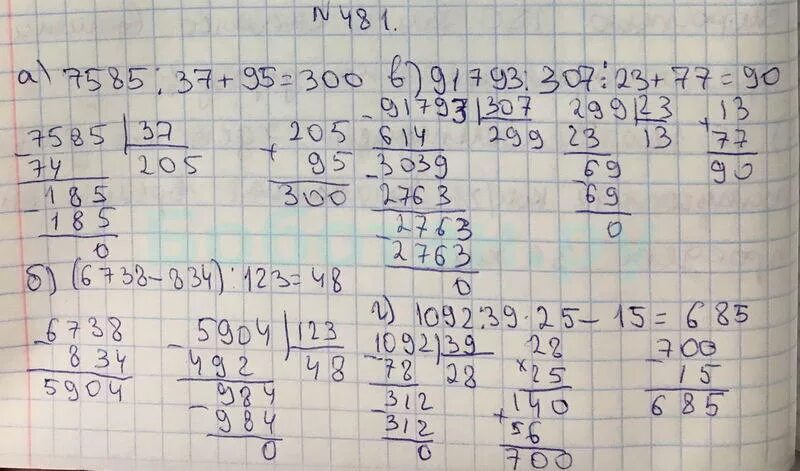 N 481.
а) 7585 : 37 + 95 = 300
7585 | 37
74
205
185
185
0
+ 205
95
300
в) 91793 : 307 : 23 + 77 = 90
91793 | 307
614
299
3039
2763
2763
2763
0
299 | 23
23
13
69
69
0
+ 13
77
90
б) (6738 - 834) : 123 = 48
- 6738
834
5904
5904 | 123
492
48
984
984
0
г) 1092 : 39 · 25 - 15 = 685
1092 | 39
78
28
312
312
0
28
× 25
140
+ 56
700
- 700
15
685